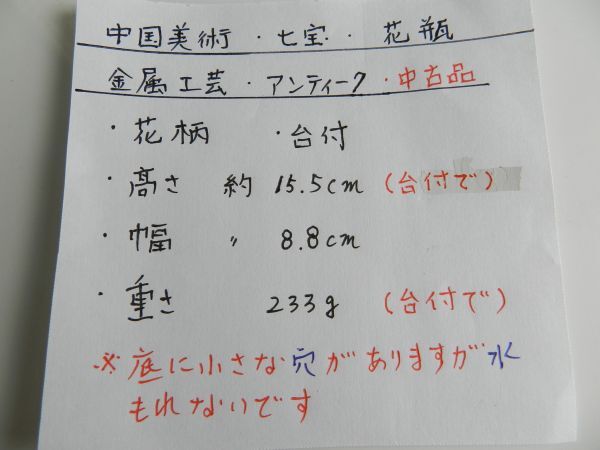 中国美術・七宝・花瓶
金属工芸・アンティーク・中古品
・花柄 ・台付
・高さ 約 15.5cm (台付で)
・幅 〃 8.8cm
・重さ 233g (台付で)
※底に小さな穴がありますが水
もれないです